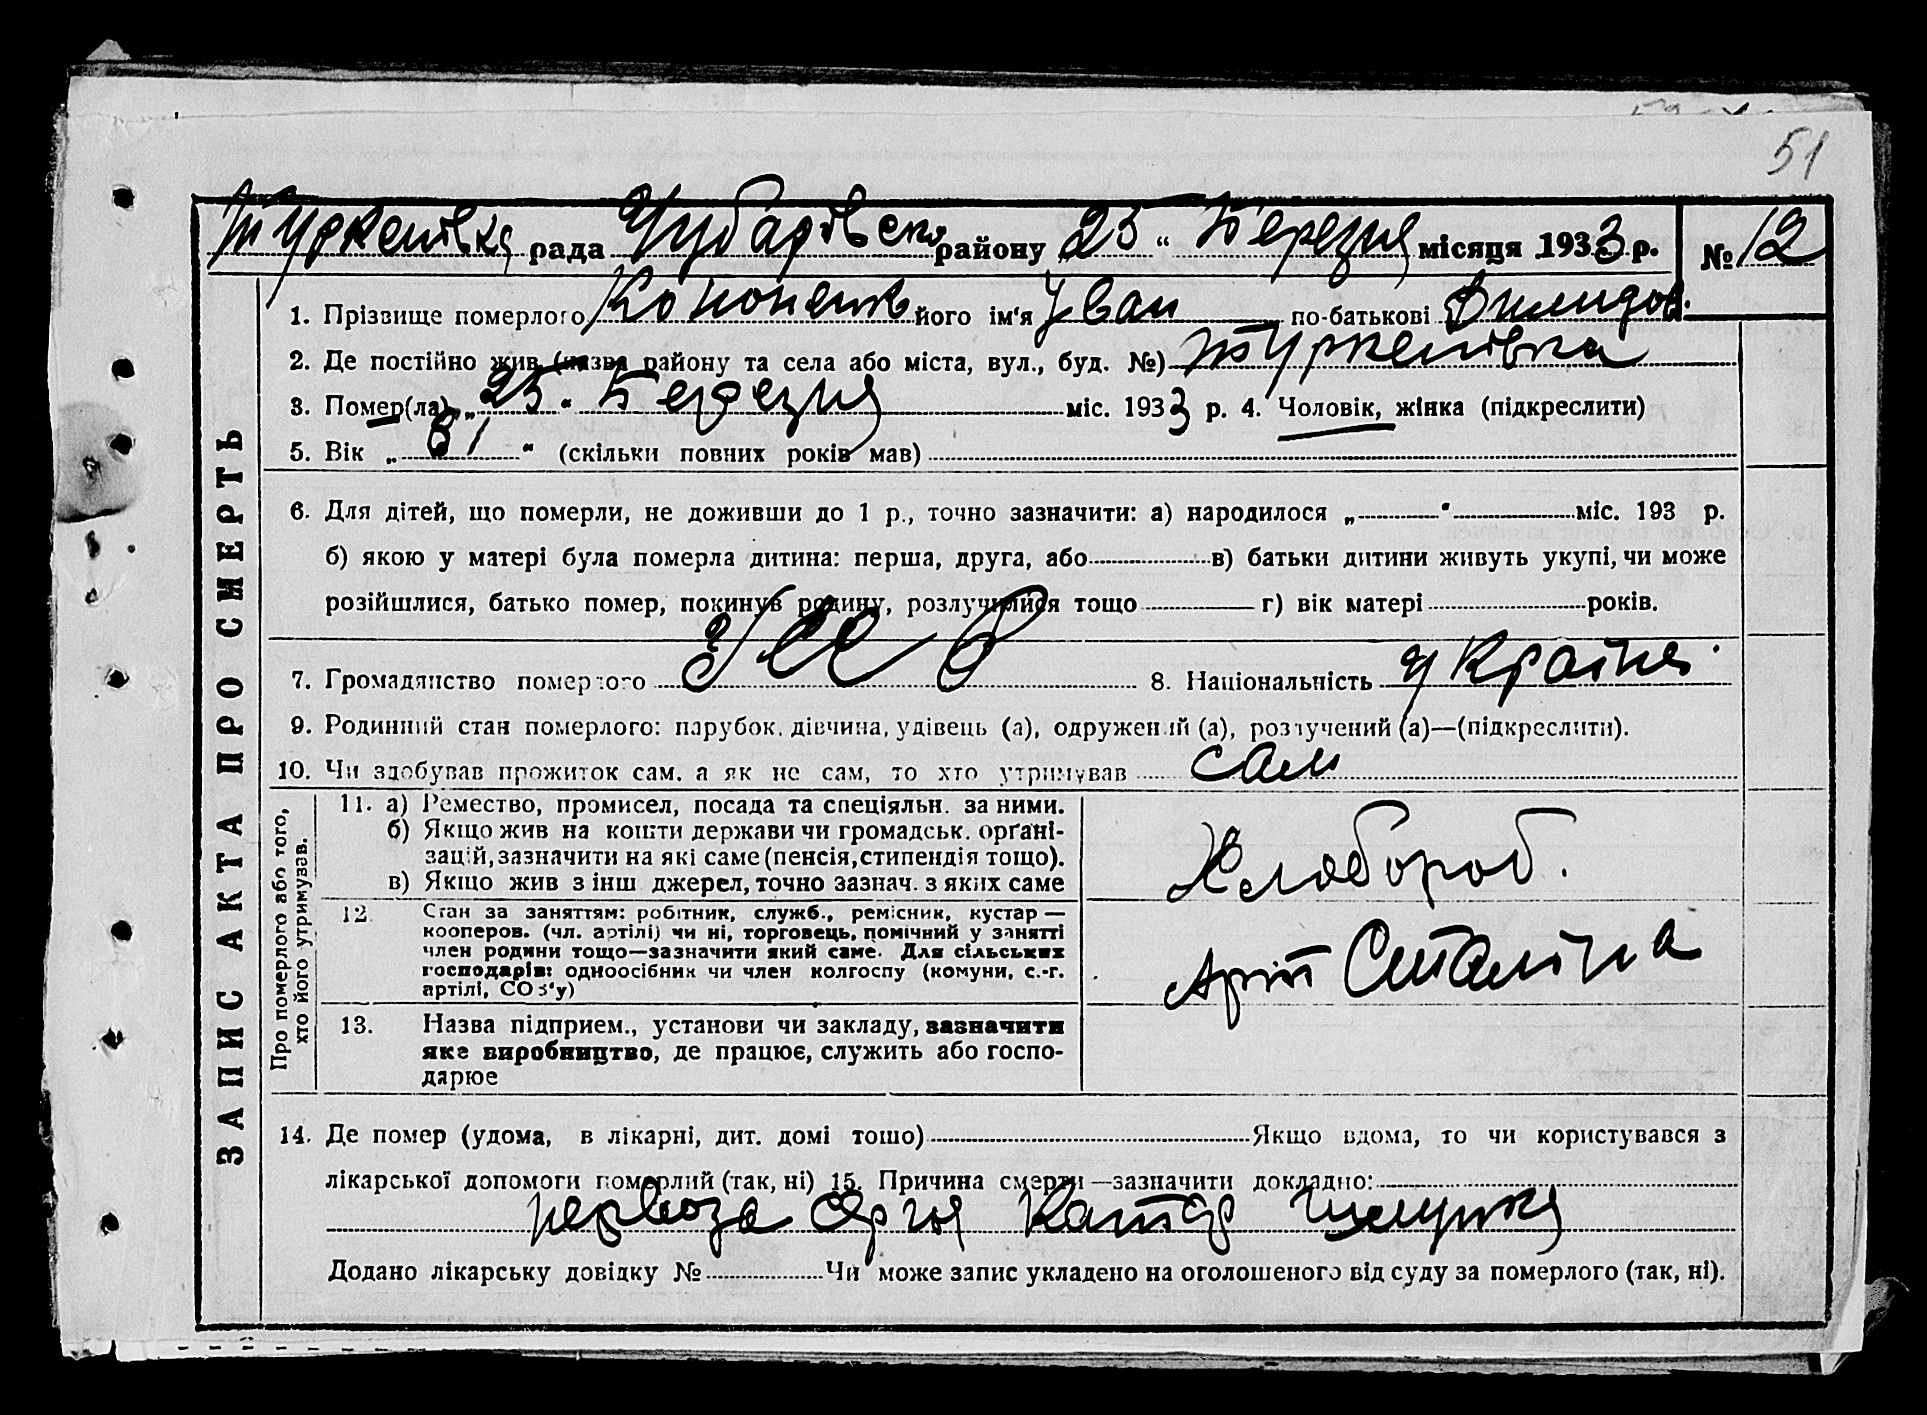 51
Туркенівка рада Чубарівськ району 25 " Березня місяця 1933 р. № 12
1. Прізвище померлого Кононенко його ім'я Іван по-батькові
2. Де постійно жив (назва району та села або міста, вул., буд. №) Туркенівка
3. Помер(ла) „ 25 " Березня міс. 1933 р. 4. Чоловік, жінка (підкреслити)
5. Вік „ 31 " (скільки повних років мав)
6. Для дітей, що померли, не доживши до 1 р., точно зазначити: а) народилося „ " міс. 193 р.
б) якою у матері була померла дитина: перша, друга, або в) батьки дитини живуть укупі, чи може
розійшлися, батько помер, покинув родину, розлучилися тощо г) вік матері років.
7. Громадянство померлого УССР 8. Національність україне.
9. Родинний стан померлого: парубок, дівчина, удівець (а), одружений (а), розлучений (а)—(підкреслити).
10. Чи здобував прожиток сам, а як не сам, то хто утримував сам
ЗАПИС АКТА ПРО СМЕРТЬ
Про померлого або того,
хто його утримував.
11. а) Ремество, промисел, посада та спеціяльн. за ними.
б) Якщо жив на кошти держави чи громадськ. орґані-
зацій, зазначити на які саме (пенсія, стипендія тощо).
в) Якщо жив з інш джерел, точно зазнач. з яких саме
Хлебороб.
12. Стан за заняттям: робітник, служб., ремісник, кустар —
кооперов. (чл. артілі) чи ні, торговець, помічний у занятті
член родини тощо—зазначити який саме. Для сільських
господарів: одноосібник чи член колгоспу (комуни, с.-г.
артілі, СОЗ'у)
Арті Сталіна
13. Назва підприєм., установи чи закладу, зазначити
яке виробництво, де працює, служить або госпо-
дарює
14. Де помер (удома, в лікарні, дит. домі тощо) Якщо вдома, то чи користувався з
лікарської допомоги померлий (так, ні) 15. Причина смерти—зазначити докладно:
Катар
Додано лікарську довідку № Чи може запис укладено на оголошеного від суду за померлого (так, ні).